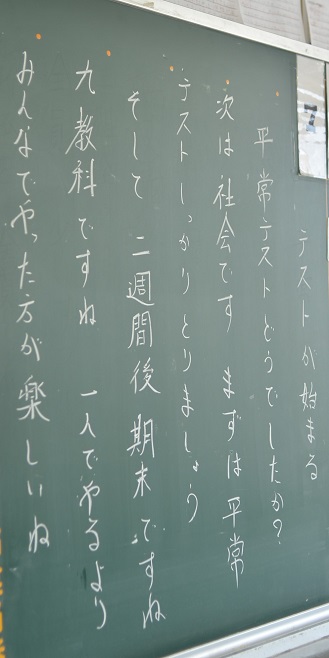 7
テストが始まる
平常テストどうでしたか?
次は社会です まずは平常
テストしっかりとりましょう
そして 二週間後期末ですね
九教科ですね 一人でやるより
みんなでやった方が楽しいね